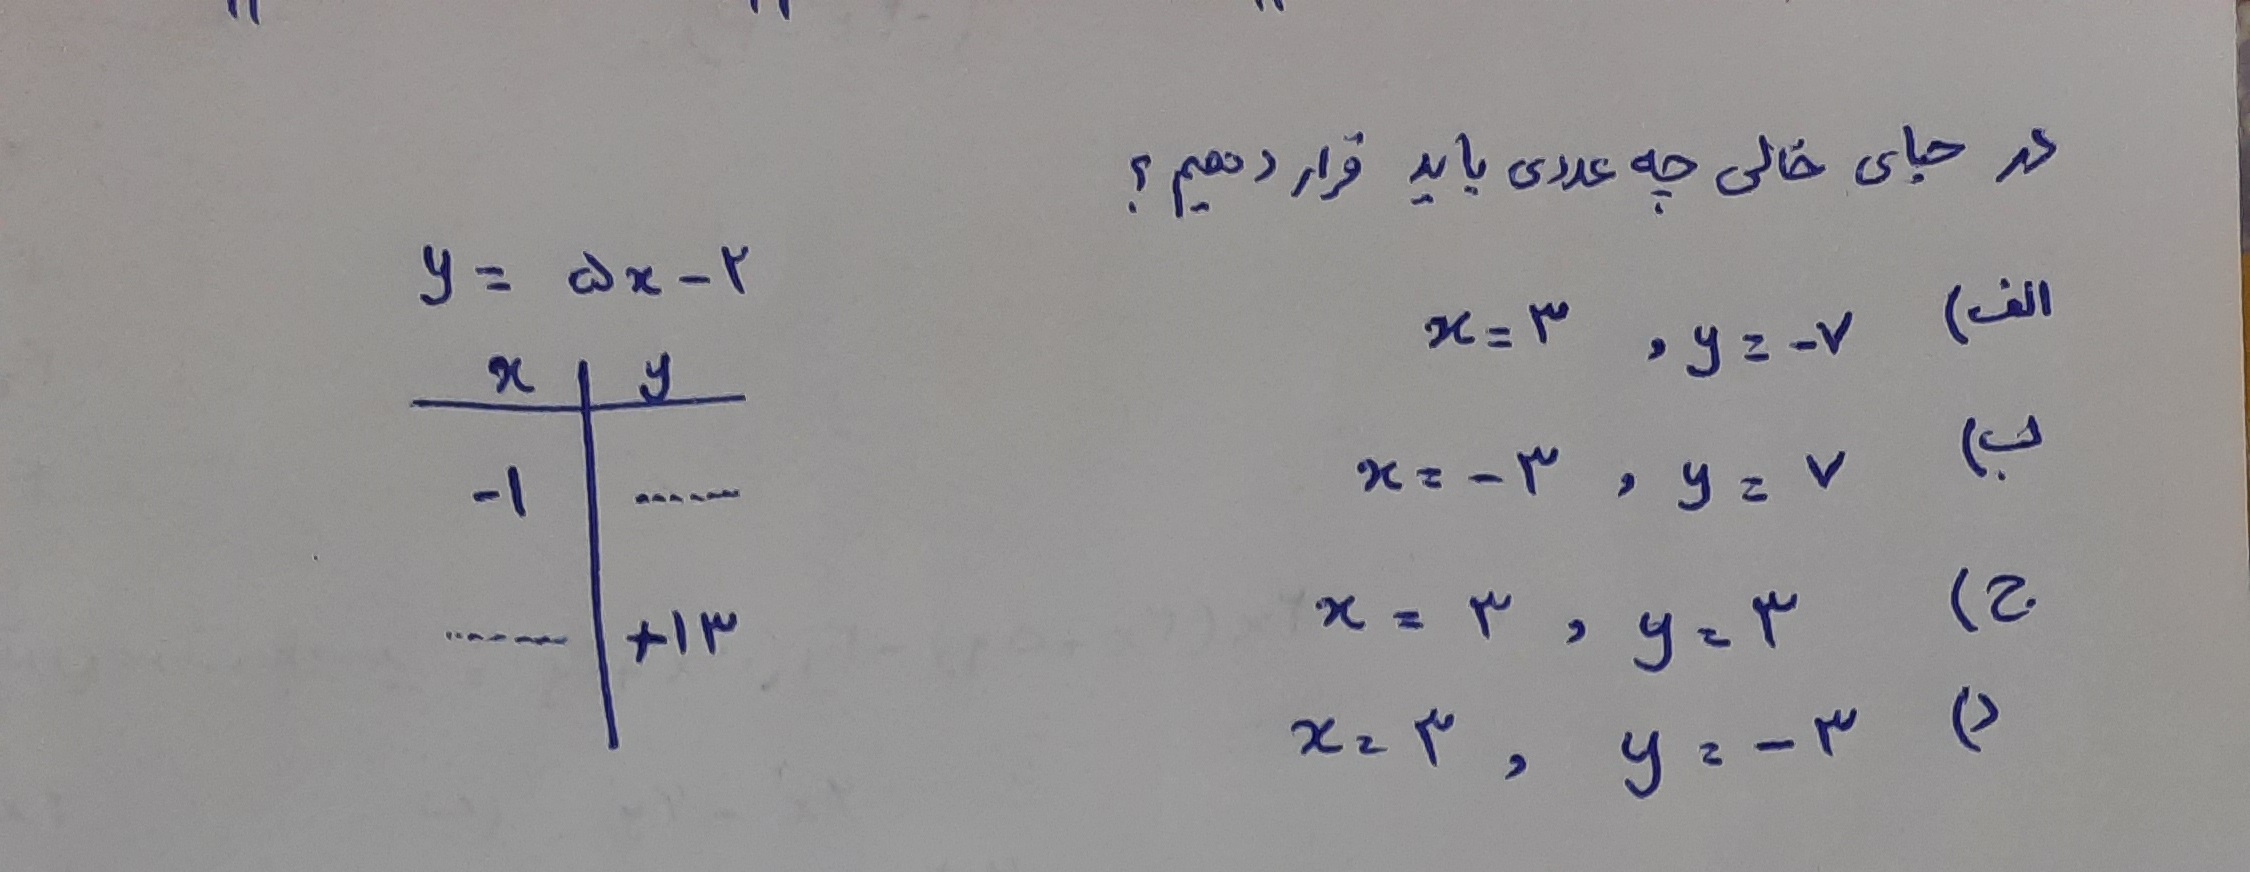 در جای خالی چه عددی باید قرار دهیم؟
الف) x = ۳ , y = -۷
ب) x = -۳ , y = ۷
ج) x = ۳ , y = ۳
د) x = ۳ , y = -۳
y = ۵x - ۲
x | y
-۱ | ......
...... | +۱۳